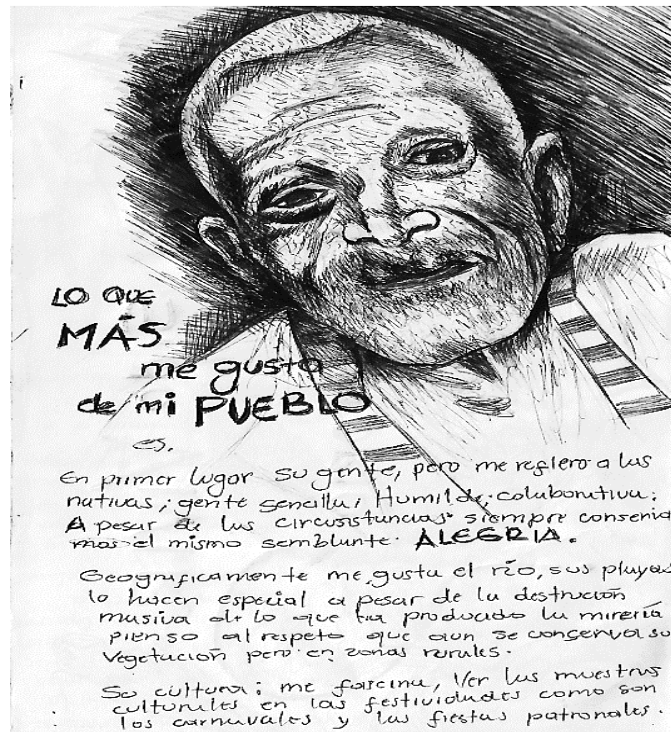 LO QUE
MÁS
me gusta
de mi PUEBLO
es.
En primer lugar su gente, pero me refiero a las
nativas, gente sencilla, Humilde, colaborativa;
A pesar de las circusistancias siempre conserva
mos el mismo semblante. ALEGRIA.
Geograficamente me gusta el río, sus playas
lo hacen especial a pesar de la destrución
masiva de lo que ha producido la minería
pienso al respeto que aun se conserva su
vegetación pero en zonas rurales.
Su cultura; me fascina, Ver las muestras
culturales en las festividades como son
los carnavales y las fiestas patronales.